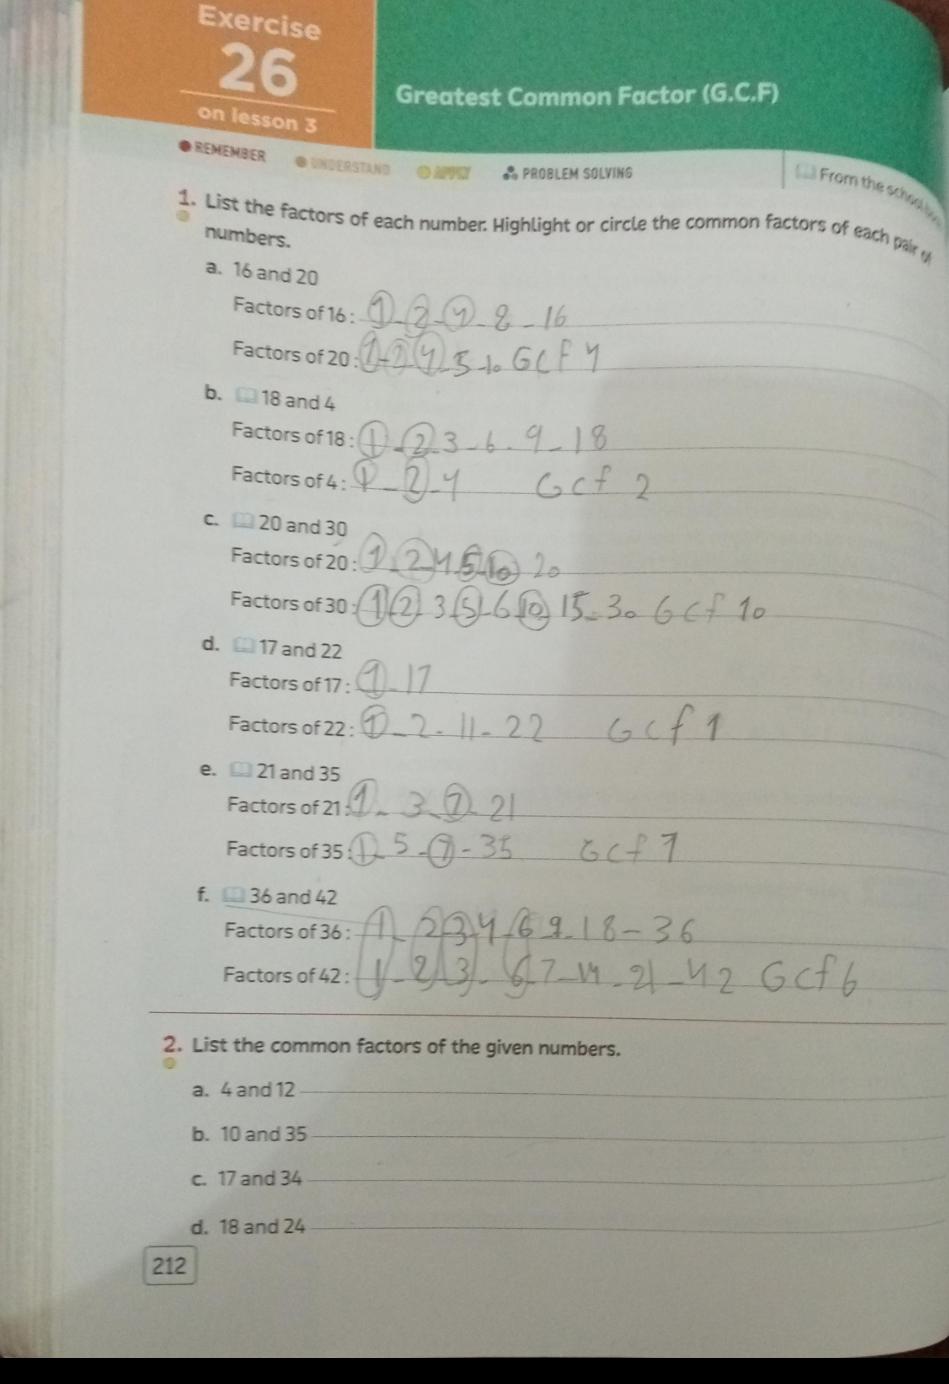 Exercise
26
on lesson 3
Greatest Common Factor (G.C.F)
REMEMBER UNDERSTAND APPLY PROBLEM SOLVING From the school
1. List the factors of each number. Highlight or circle the common factors of each pair of
numbers.
a. 16 and 20
Factors of 16: 1-2-4-8-16
Factors of 20: 1-2 4-5-10 GCf 4
b. 18 and 4
Factors of 18: 1-2-3-6-9-18
Factors of 4: 1-2-4 Gcf 2
c. 20 and 30
Factors of 20: 1-2-4-5-10 20
Factors of 30: 1 2 3 5-6 10 15-30 Gcf 10
d. 17 and 22
Factors of 17: 1-17
Factors of 22: 1-2-11-22 Gcf 1
e. 21 and 35
Factors of 21: 1-3-7-21
Factors of 35: 1-5-7-35 Gcf 7
f. 36 and 42
Factors of 36: 1-2 3 4-6 9-18-36
Factors of 42: 1-2 3-6 7-14-21-42 Gcf 6
2. List the common factors of the given numbers.
a. 4 and 12
b. 10 and 35
c. 17 and 34
d. 18 and 24
212